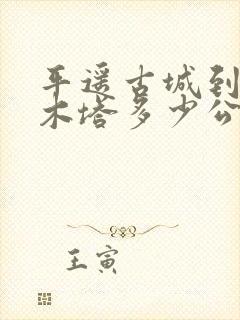 平遥古城到
木塔多少公
王寅